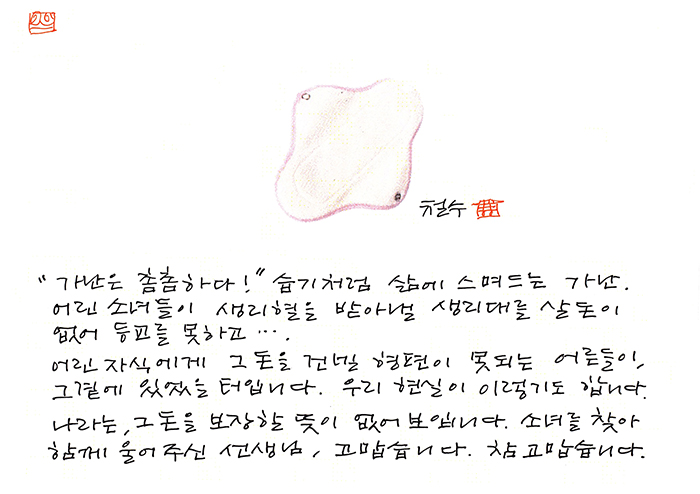 철수
"가난은 촘촘하다!" 습기처럼 삶에 스며드는 가난.
어린 소녀들이 생리혈을 받아낼 생리대를 살 돈이
없어 등교를 못하고 ….
어린 자식에게 그 돈을 건넬 형편이 못되는 어른들이,
그곁에 있었을 터입니다. 우리 현실이 이렇기도 합니다.
나라는, 그 돈을 보장할 뜻이 없어 보입니다. 소녀를 찾아
함께 울어주신 선생님, 고맙습니다. 참 고맙습니다.